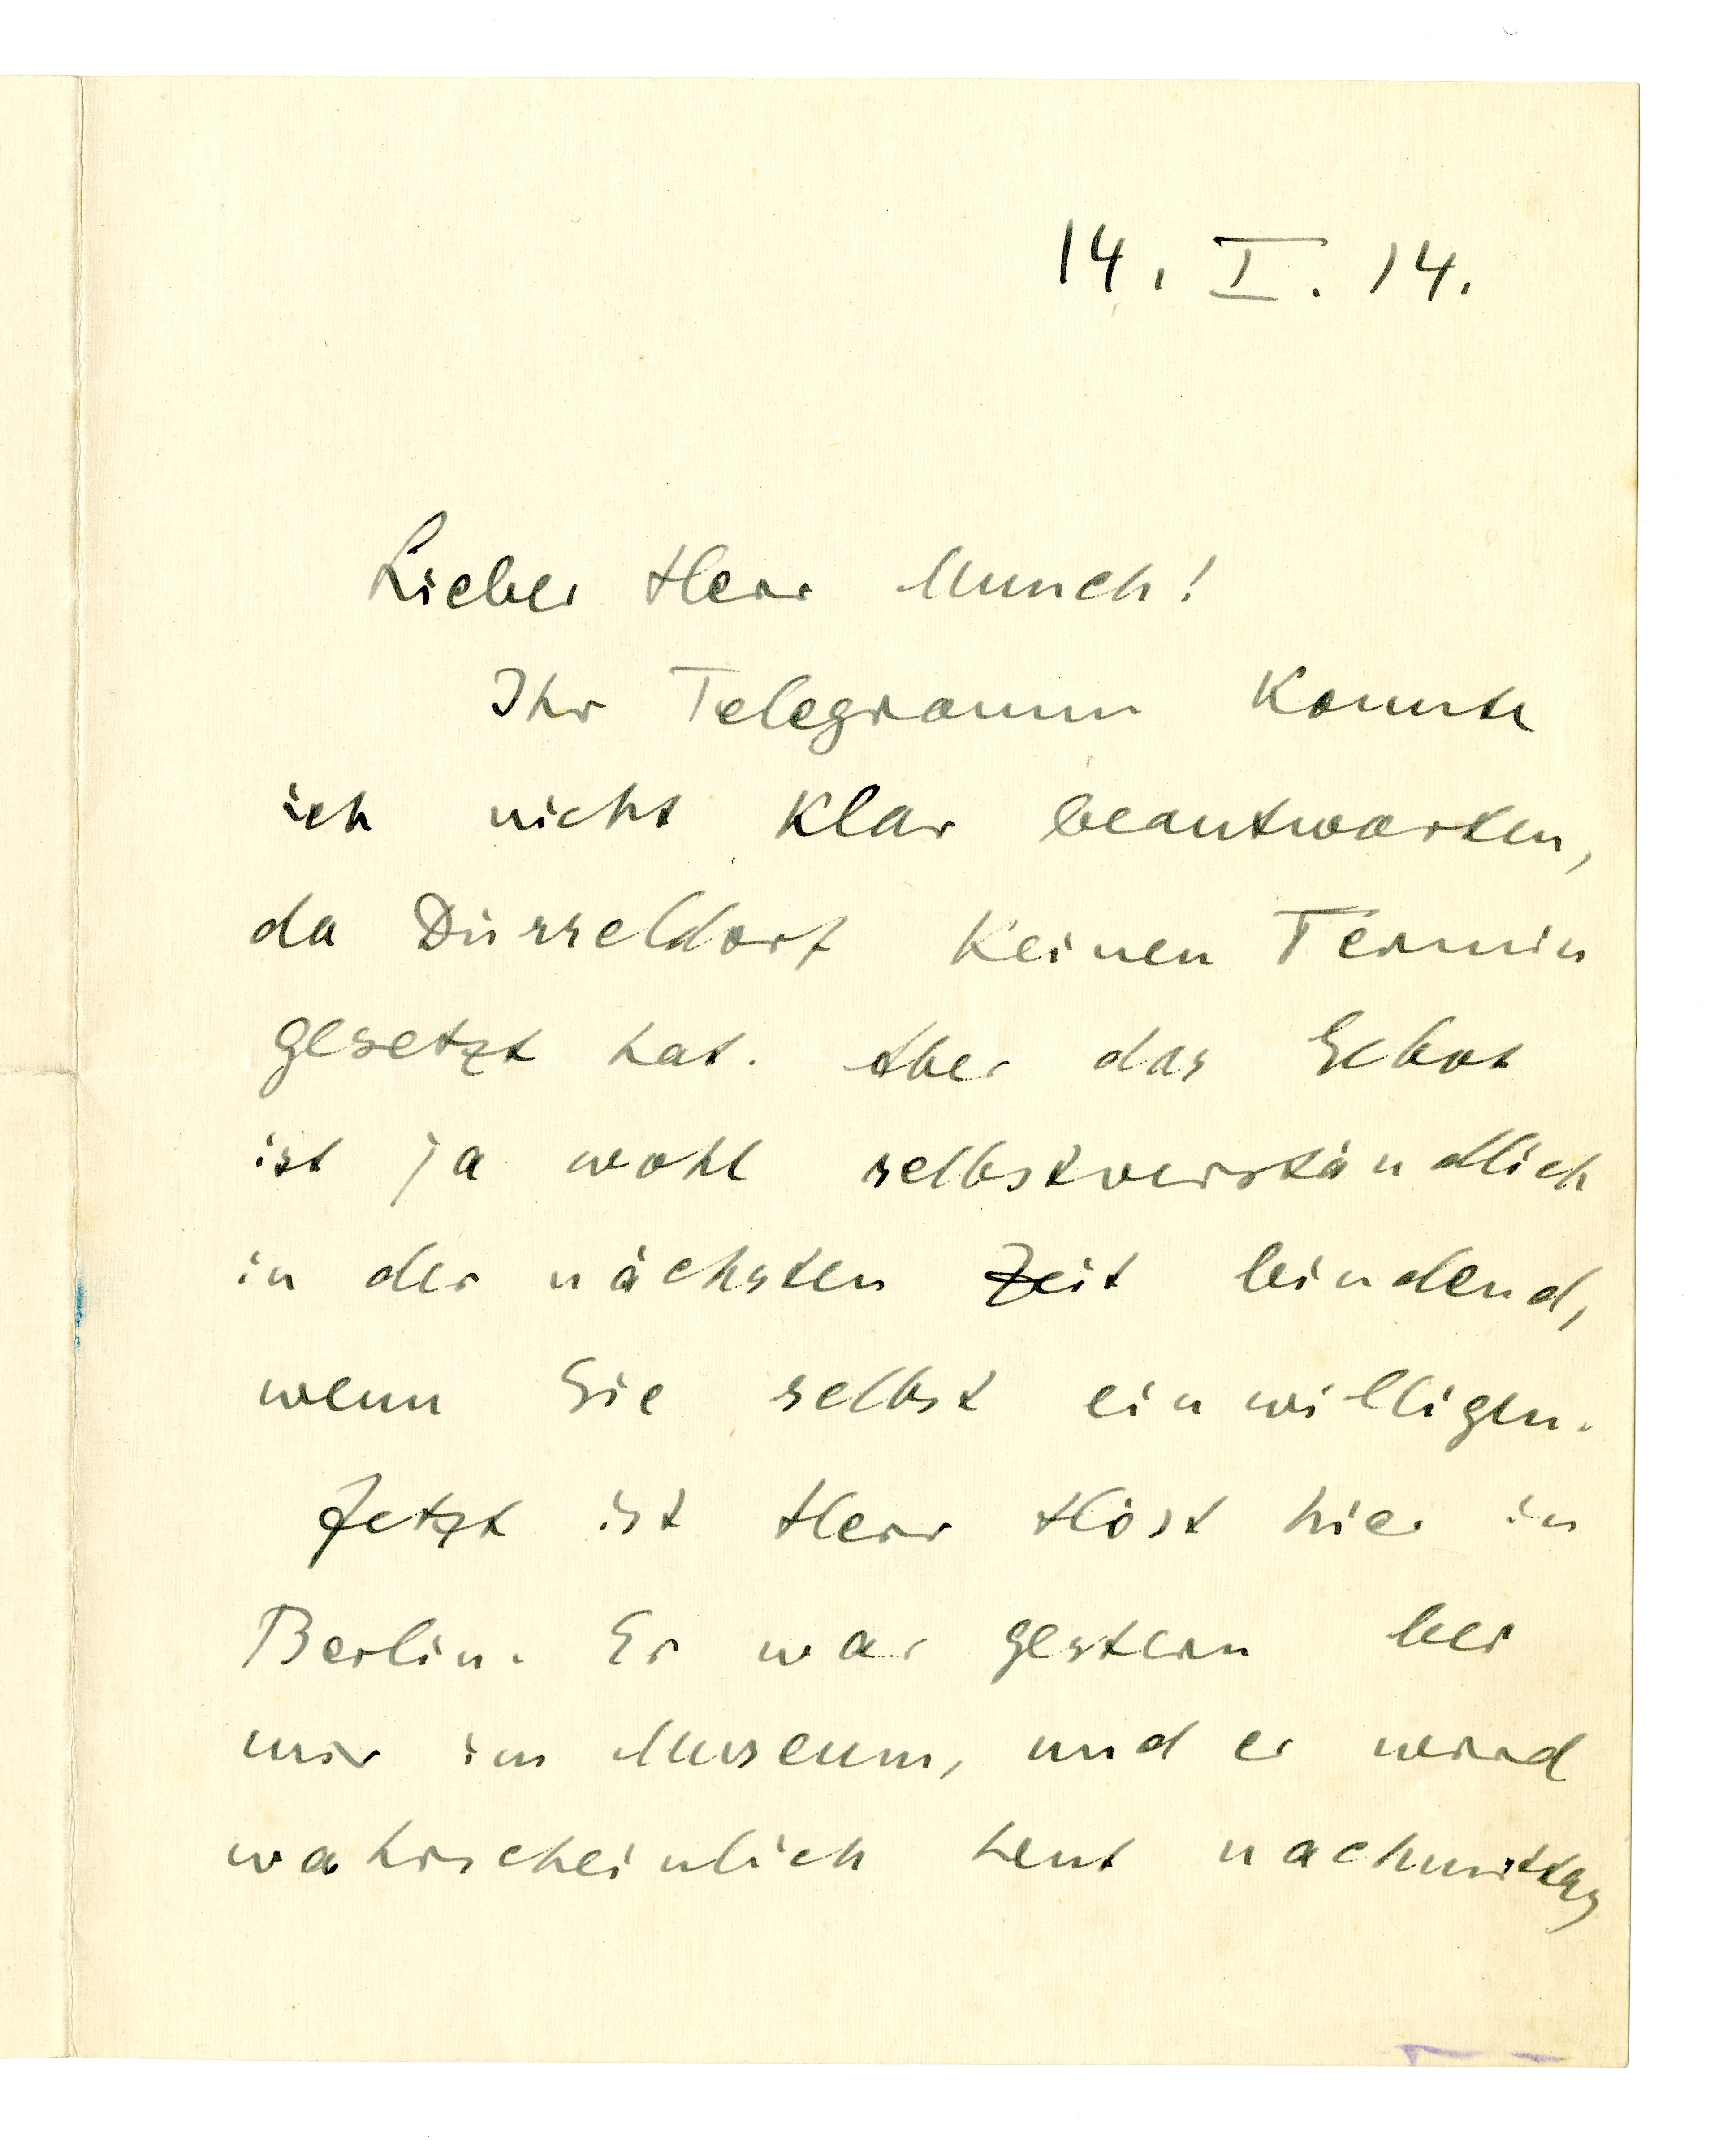 14. I. 14.
Lieber Herr Munch!
Ihr Telegramm konnte
ich nicht klar beantworten,
da Düsseldorf keinen Termin
gesetzt hat. Aber das Gebot
ist ja wohl selbstverständlich
in der nächsten Zeit bindend,
wenn Sie selbst einwilligen.
Jetzt ist Herr Höst hier in
Berlin. Er war gestern bei
mir im Museum, und er wird
wahrscheinlich heut nachmittag